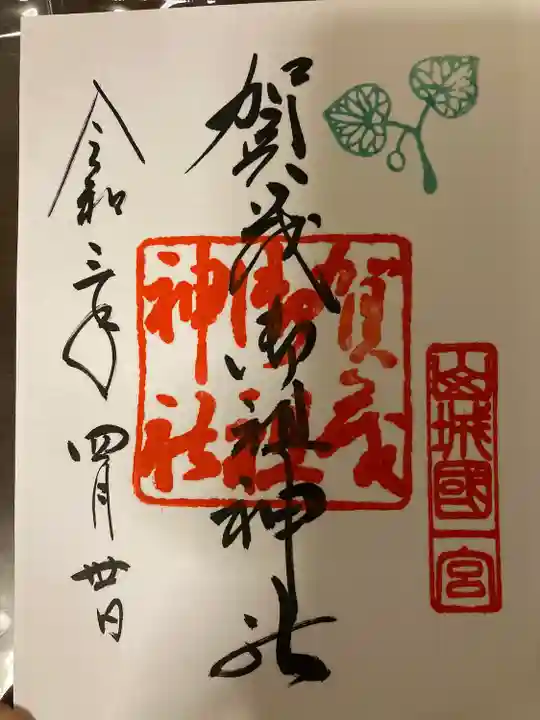 山城國一宮
賀茂御祖神社
賀茂御祖神社
令和三年四月廿日